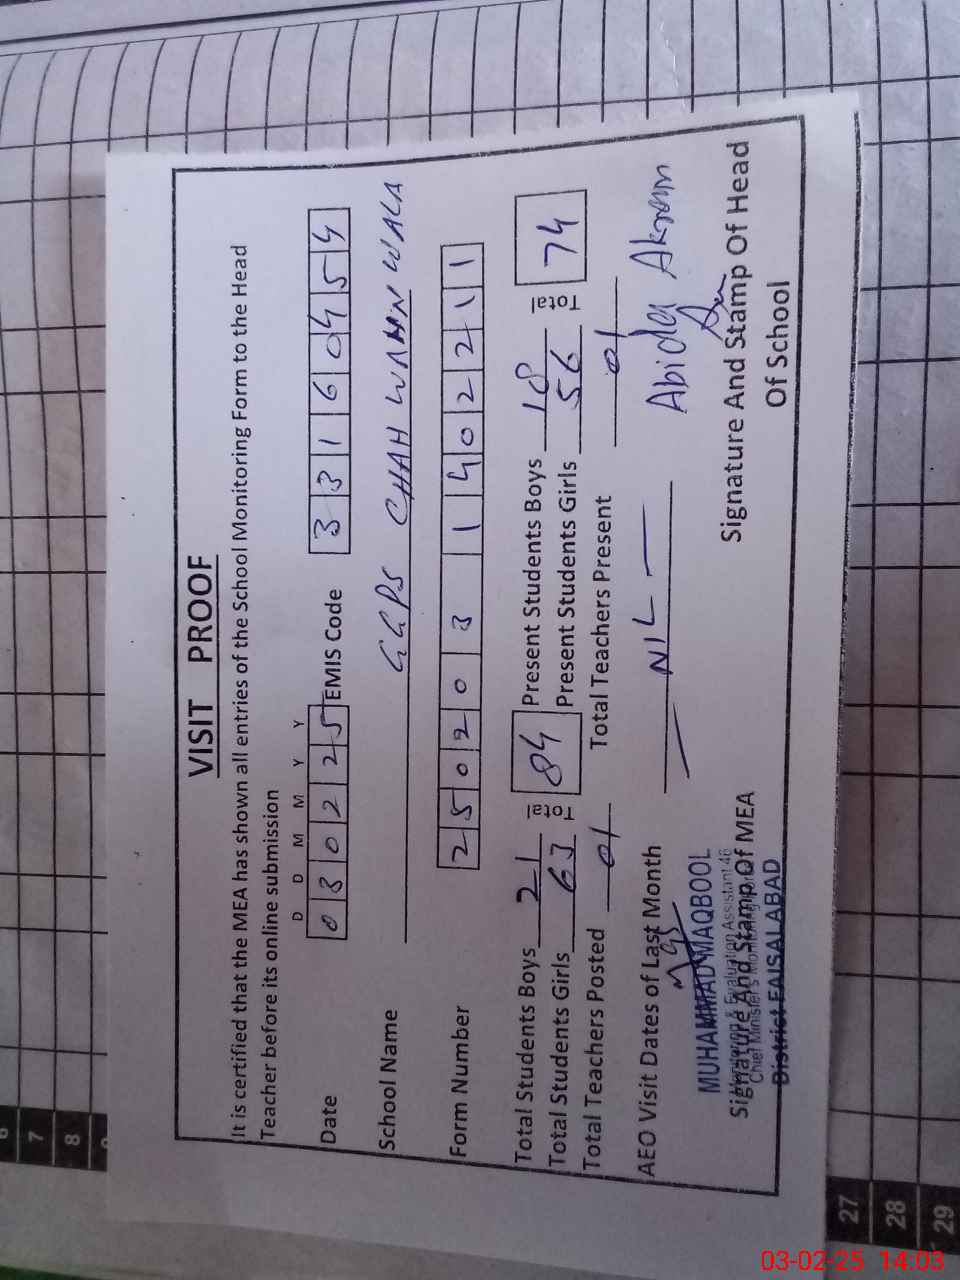 VISIT PROOF
It is certified that the MEA has shown all entries of the School Monitoring Form to the Head
Teacher before its online submission
D D M M Y Y
Date 0 3 0 2 2 5 EMIS Code 3 3 1 6 0 4 5 4
School Name GGPS CHAH WAHN WALA
Form Number 2 5 0 2 0 3 1 4 0 2 2 1 1
Total Students Boys 21 Total 84 Present Students Boys 18 Total 74
Total Students Girls 63 Present Students Girls 56
Total Teachers Posted 01 Total Teachers Present 01
AEO Visit Dates of Last Month — NIL —
MUHAMMAD MAQBOOL
Monitoring & Evaluation Assistant 46
Signature And Stamp Of MEA
Chief Minister's Monitoring Force
District FAISALABAD
Abida Akram
Signature And Stamp Of Head
Of School
6
7
8
9
27
28
29
03-02-25 14:03